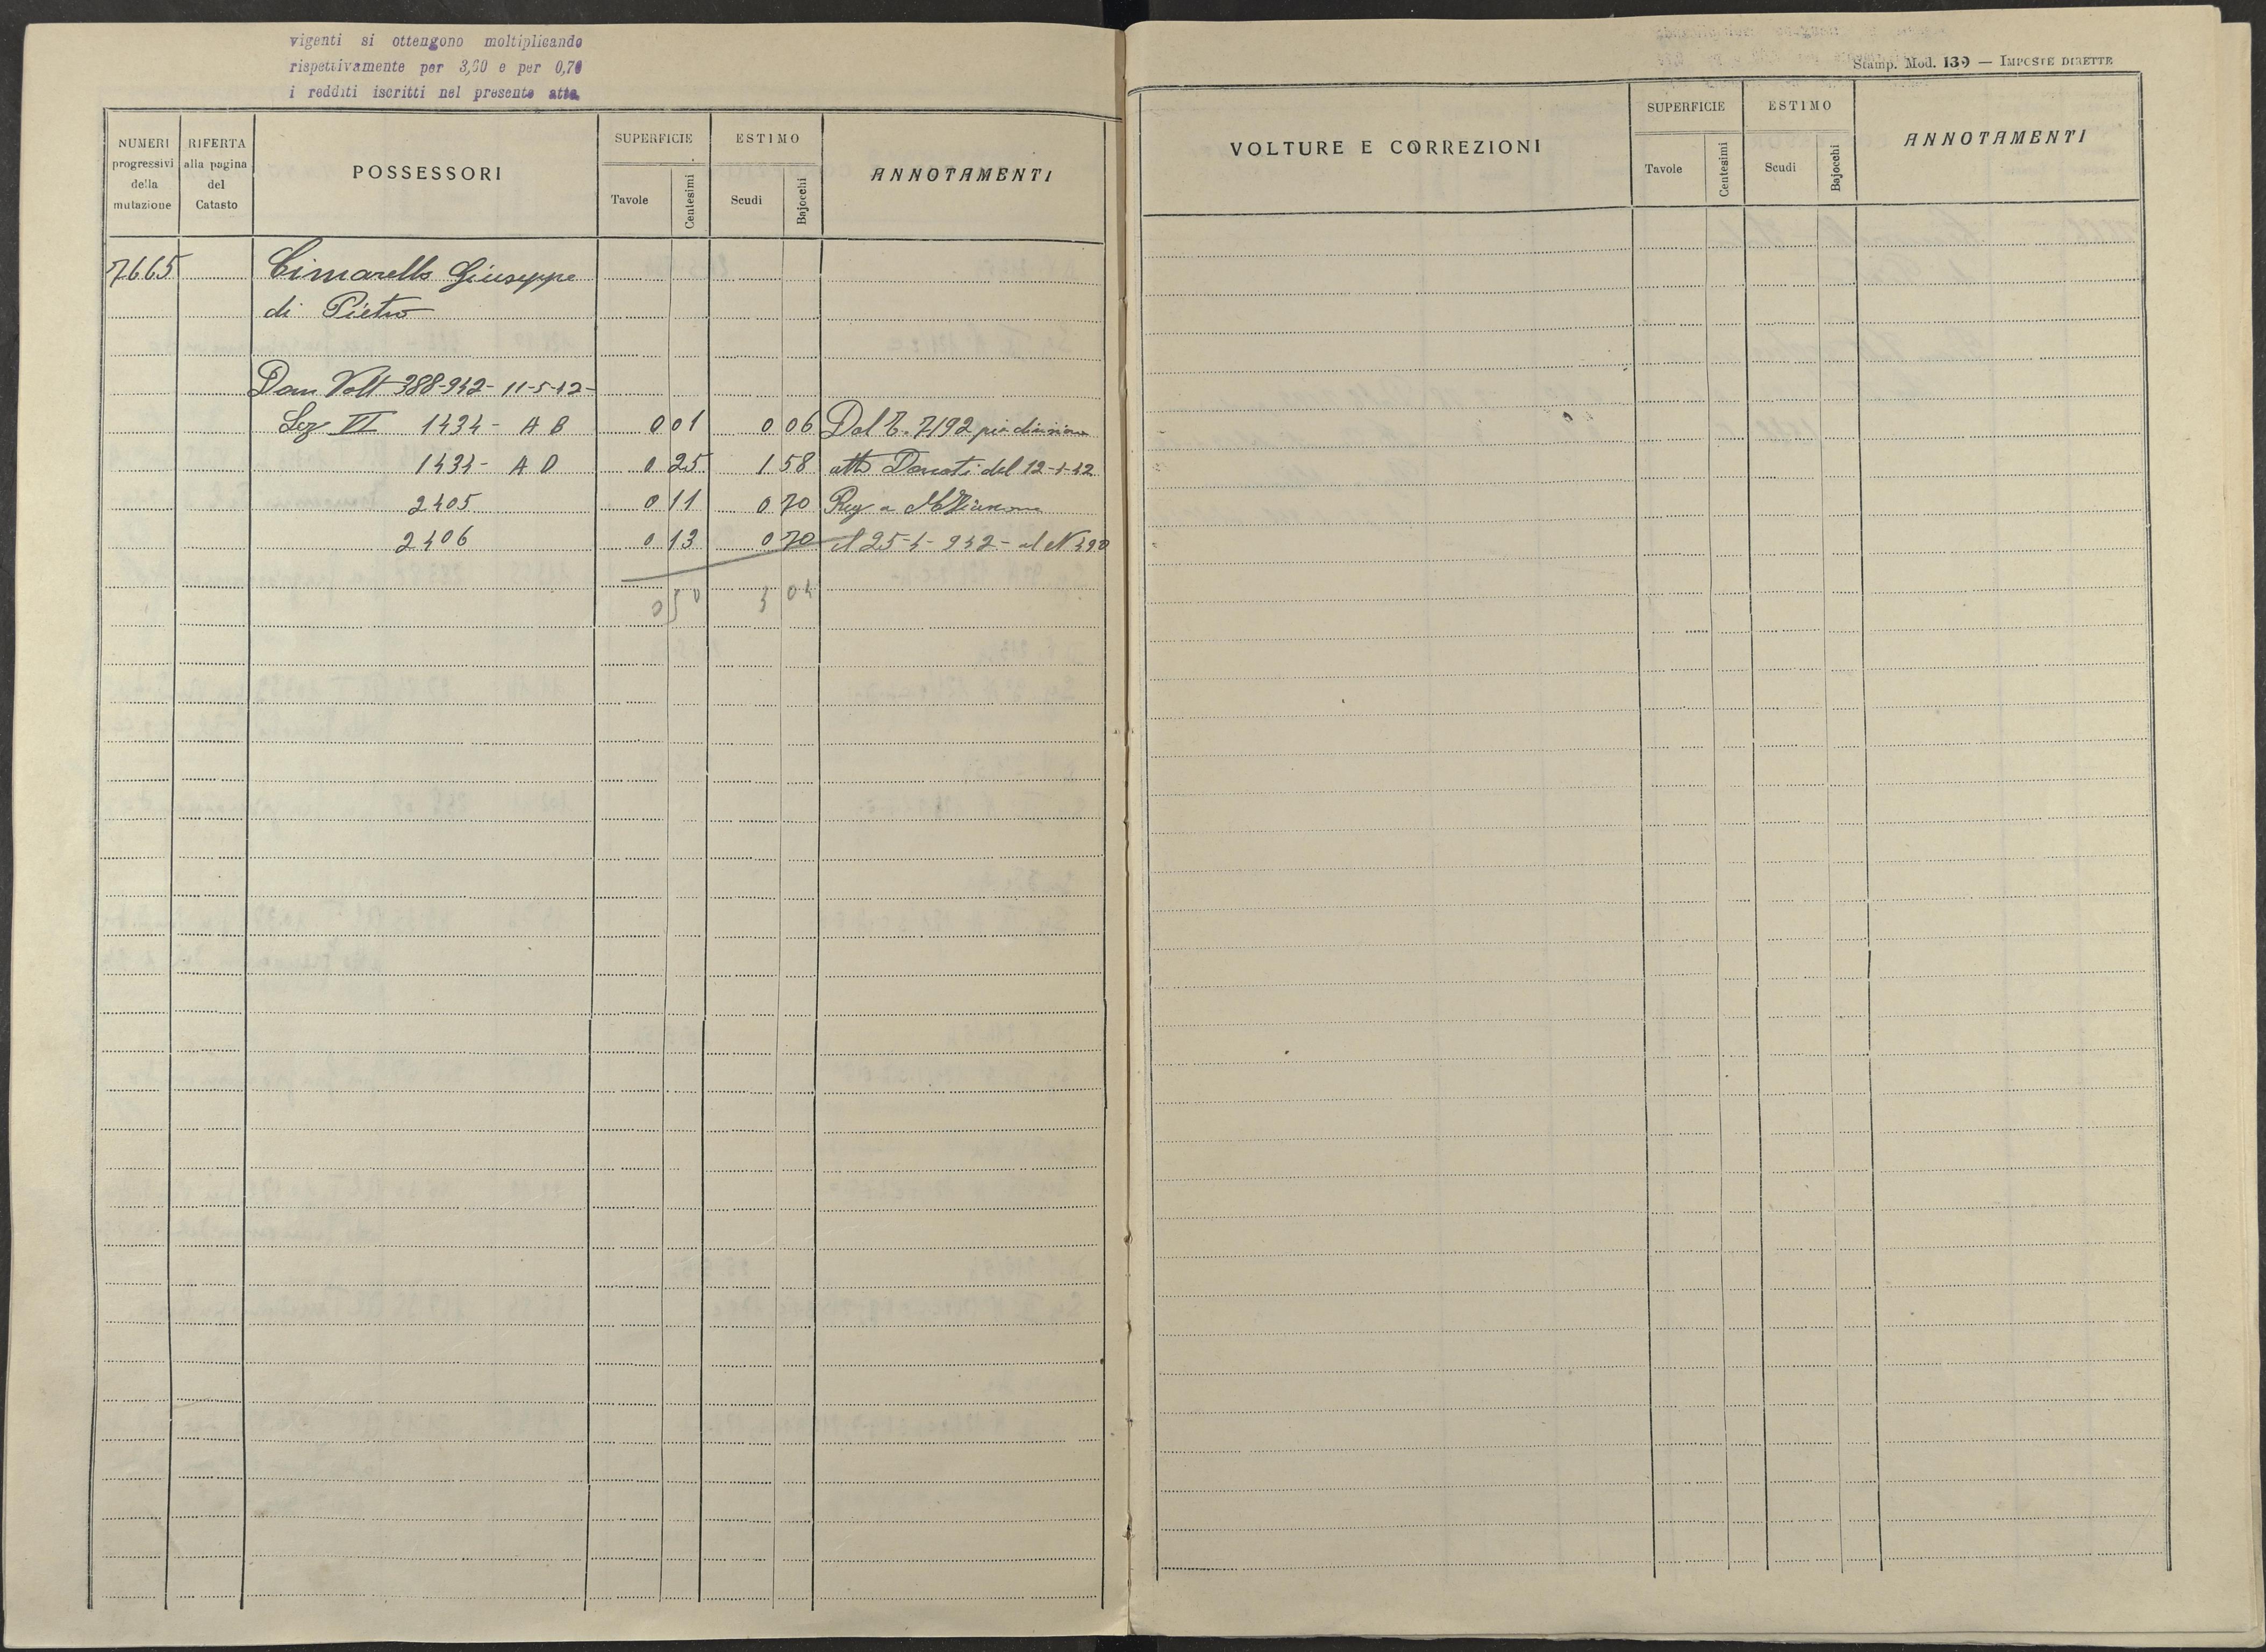 vigenti si ottengono moltiplicando
rispettivamente per 3,60 e per 0,70
i redditi iscritti nel presente atto
NUMERI progressivi della mutazione
RIFERTA alla pagina del Catasto
POSSESSORI
SUPERFICIE
Tavole
Centesimi
ESTIMO
Scudi
Bajocchi
ANNOTAMENTI
7665 Cimarello Giuseppe
di Pietro
Dom Volt 388-942- 11-5-42-
Sez VI 1434- A B 0 01 0 06 Dal E. 7192 per divisione
1434- A D 0 25 1 58 atto Donati del 12-4-42
2405 0 11 0 70 Reg a
2406 0 13 0 70 il 25-4-942- al N 490
0 50 3 04
Stamp. Mod. 139 — IMPOSTE DIRETTE
VOLTURE E CORREZIONI
SUPERFICIE
Tavole
Centesimi
ESTIMO
Scudi
Bajocchi
ANNOTAMENTI